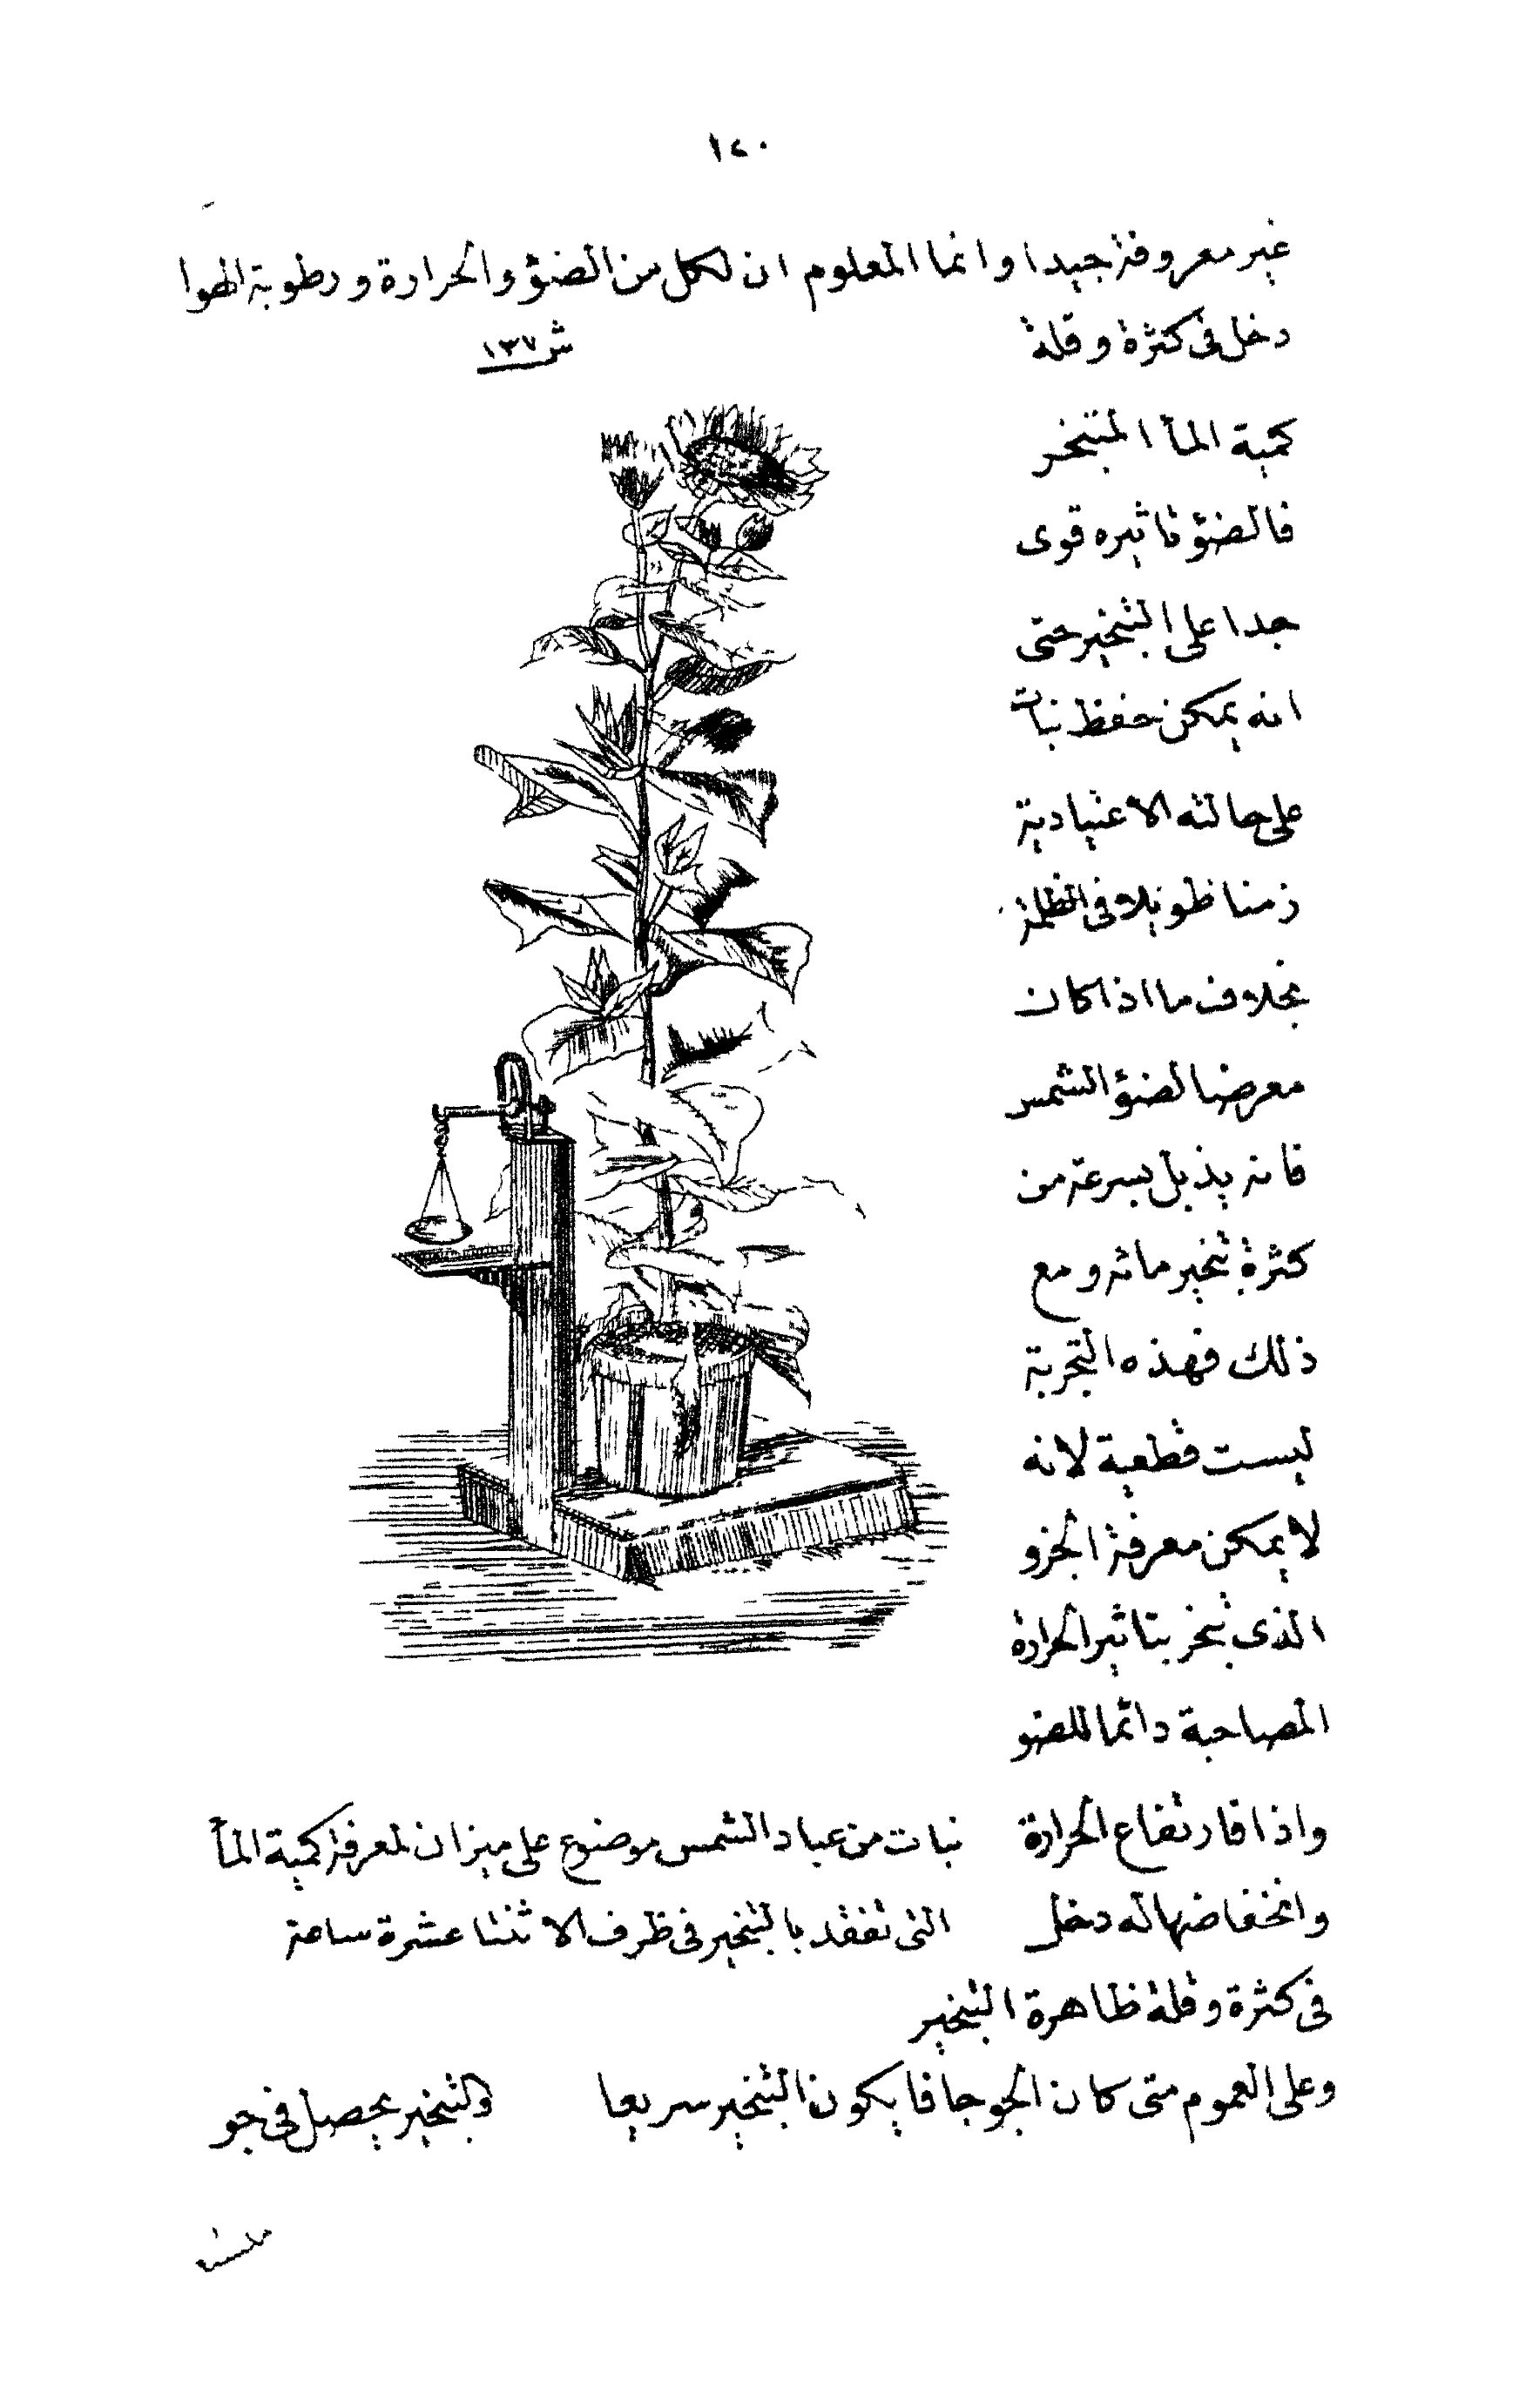 ١٢٠
غير معروفة جيدا وانما المعلوم ان لكل من الضؤ والحرارة ورطوبة الهوا
دخل فى كثرة وقلة
ش ١٣٧
كمية المأ المتبخر
فالضؤ تاثيره قوى
جدا على التبخير حتى
انه يمكن حفظ نبات
على حالته الاعتيادية
زمنا طويلا فى الظلمة
بخلاف ما اذا كان
معرضا لضؤ الشمس
فانه يذبل بسرعة من
كثرة تبخير مائه ومع
ذلك فهذه التجربة
ليست قطعية لانه
لا يمكن معرفة الجزو
الذى تبخر بتاثير الحرارة
المصاحبة دائما للضو
واذا فارتفاع الحرارة
وانخفاضها له دخل
فى كثرة وقلة ظاهرة التبخير
نبات من عباد الشمس موضوع على ميزان لمعرفة كمية المأ
التى تفقد بالتبخير فى ظرف الاثنتا عشرة ساعة
وعلى العموم متى كان الجو جافا يكون التبخير سريعا والتبخير يحصل فى جو